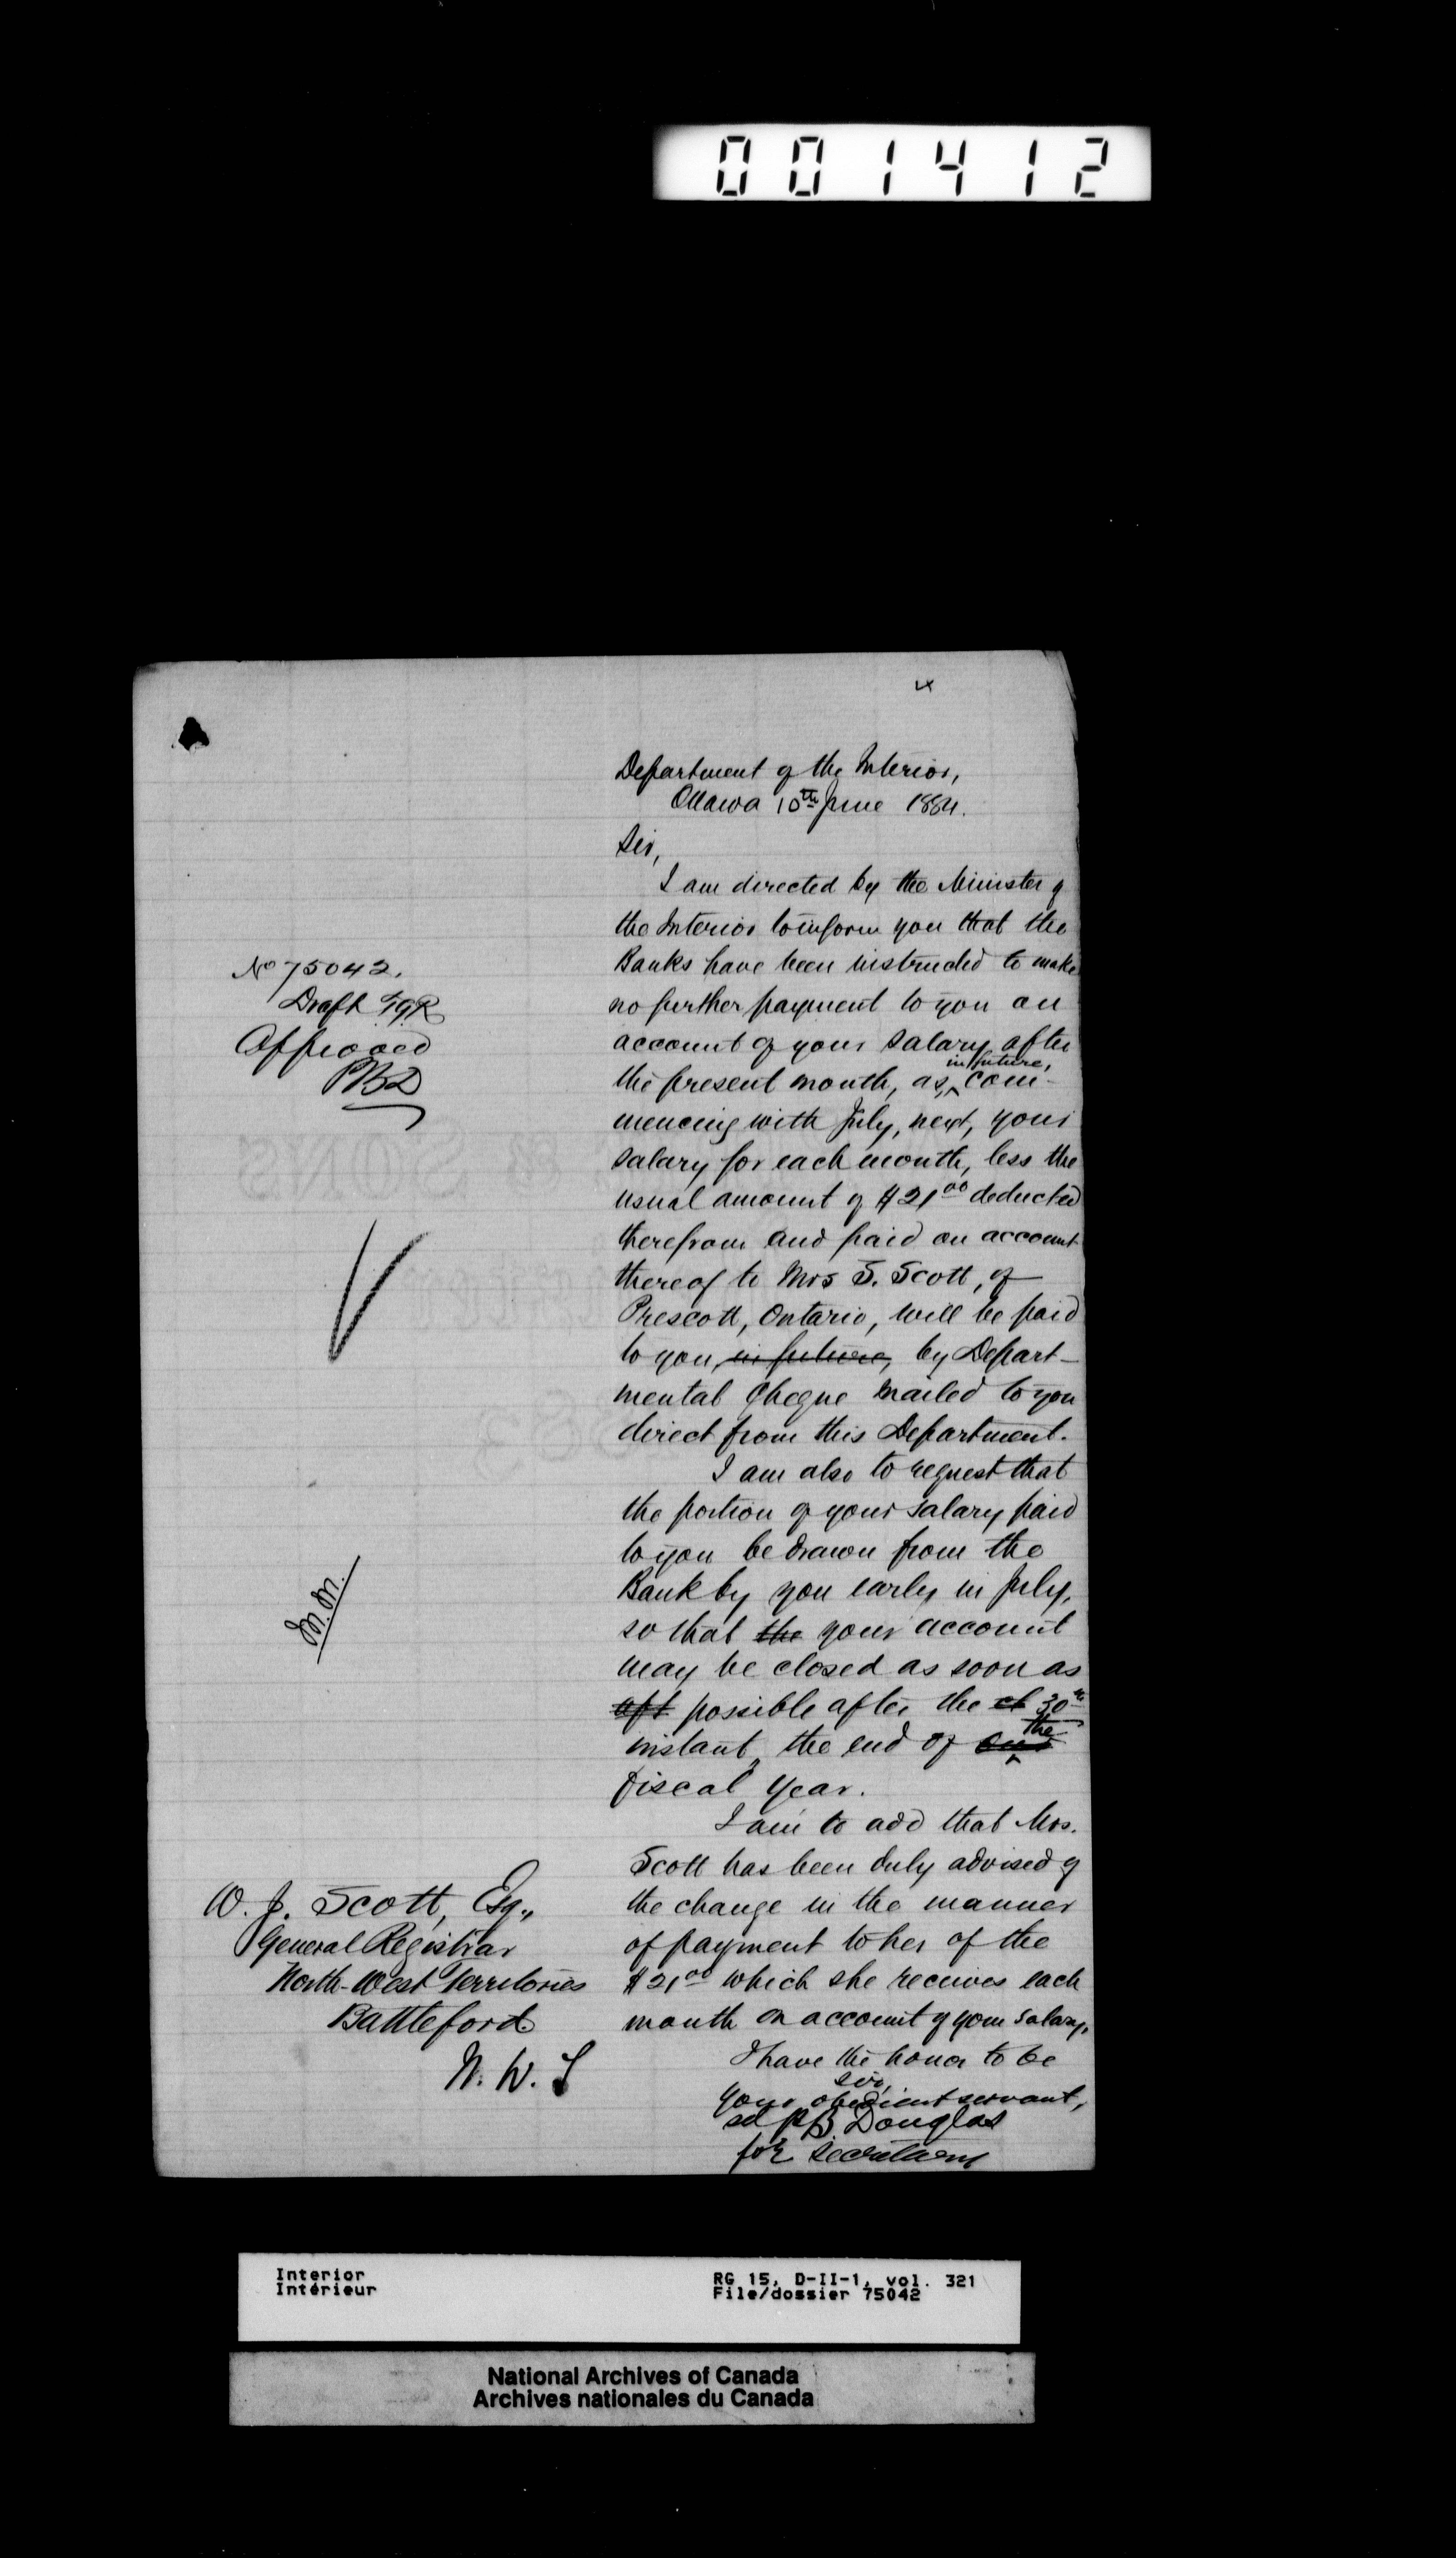 001412
Department of the Interior,
Ottawa 10th June 1884.
Sir,
I am directed by the Minister of
the Interior to inform you that the
Banks have been instructed to make
no further payment to you on
account of your salary after
the present month, as, in future, com-
mencing with July, next, your
salary for each month, less the
usual amount of $21.00 deducted
therefrom and paid on account
thereof to Mrs S. Scott, of
Prescott, Ontario, will be paid
to you, in future, by Depart-
mental Cheque mailed to you
direct from this Department.
I am also to request that
the portion of your salary paid
to you be drawn from the
Bank by you early in July,
so that the your account
may be closed as soon as
aft possible after the 30th
instant, the end of the
fiscal year.
I am to add that Mrs.
Scott has been duly advised of
the change in the manner
of payment to her of the
$21.00 which she receives each
month on account of your salary.
I have the honor to be
Sir,
your obedient servant,
sd P B. Douglas
for Secretary
No 75042.
Draft
Approved
PBD
M.M.
W. J. Scott, Esq.,
General Registrar
North-West Territories
Battleford
N. W. T
Interior
Intérieur
RG 15, D-II-1, vol. 321
File/dossier 75042
National Archives of Canada
Archives nationales du Canada